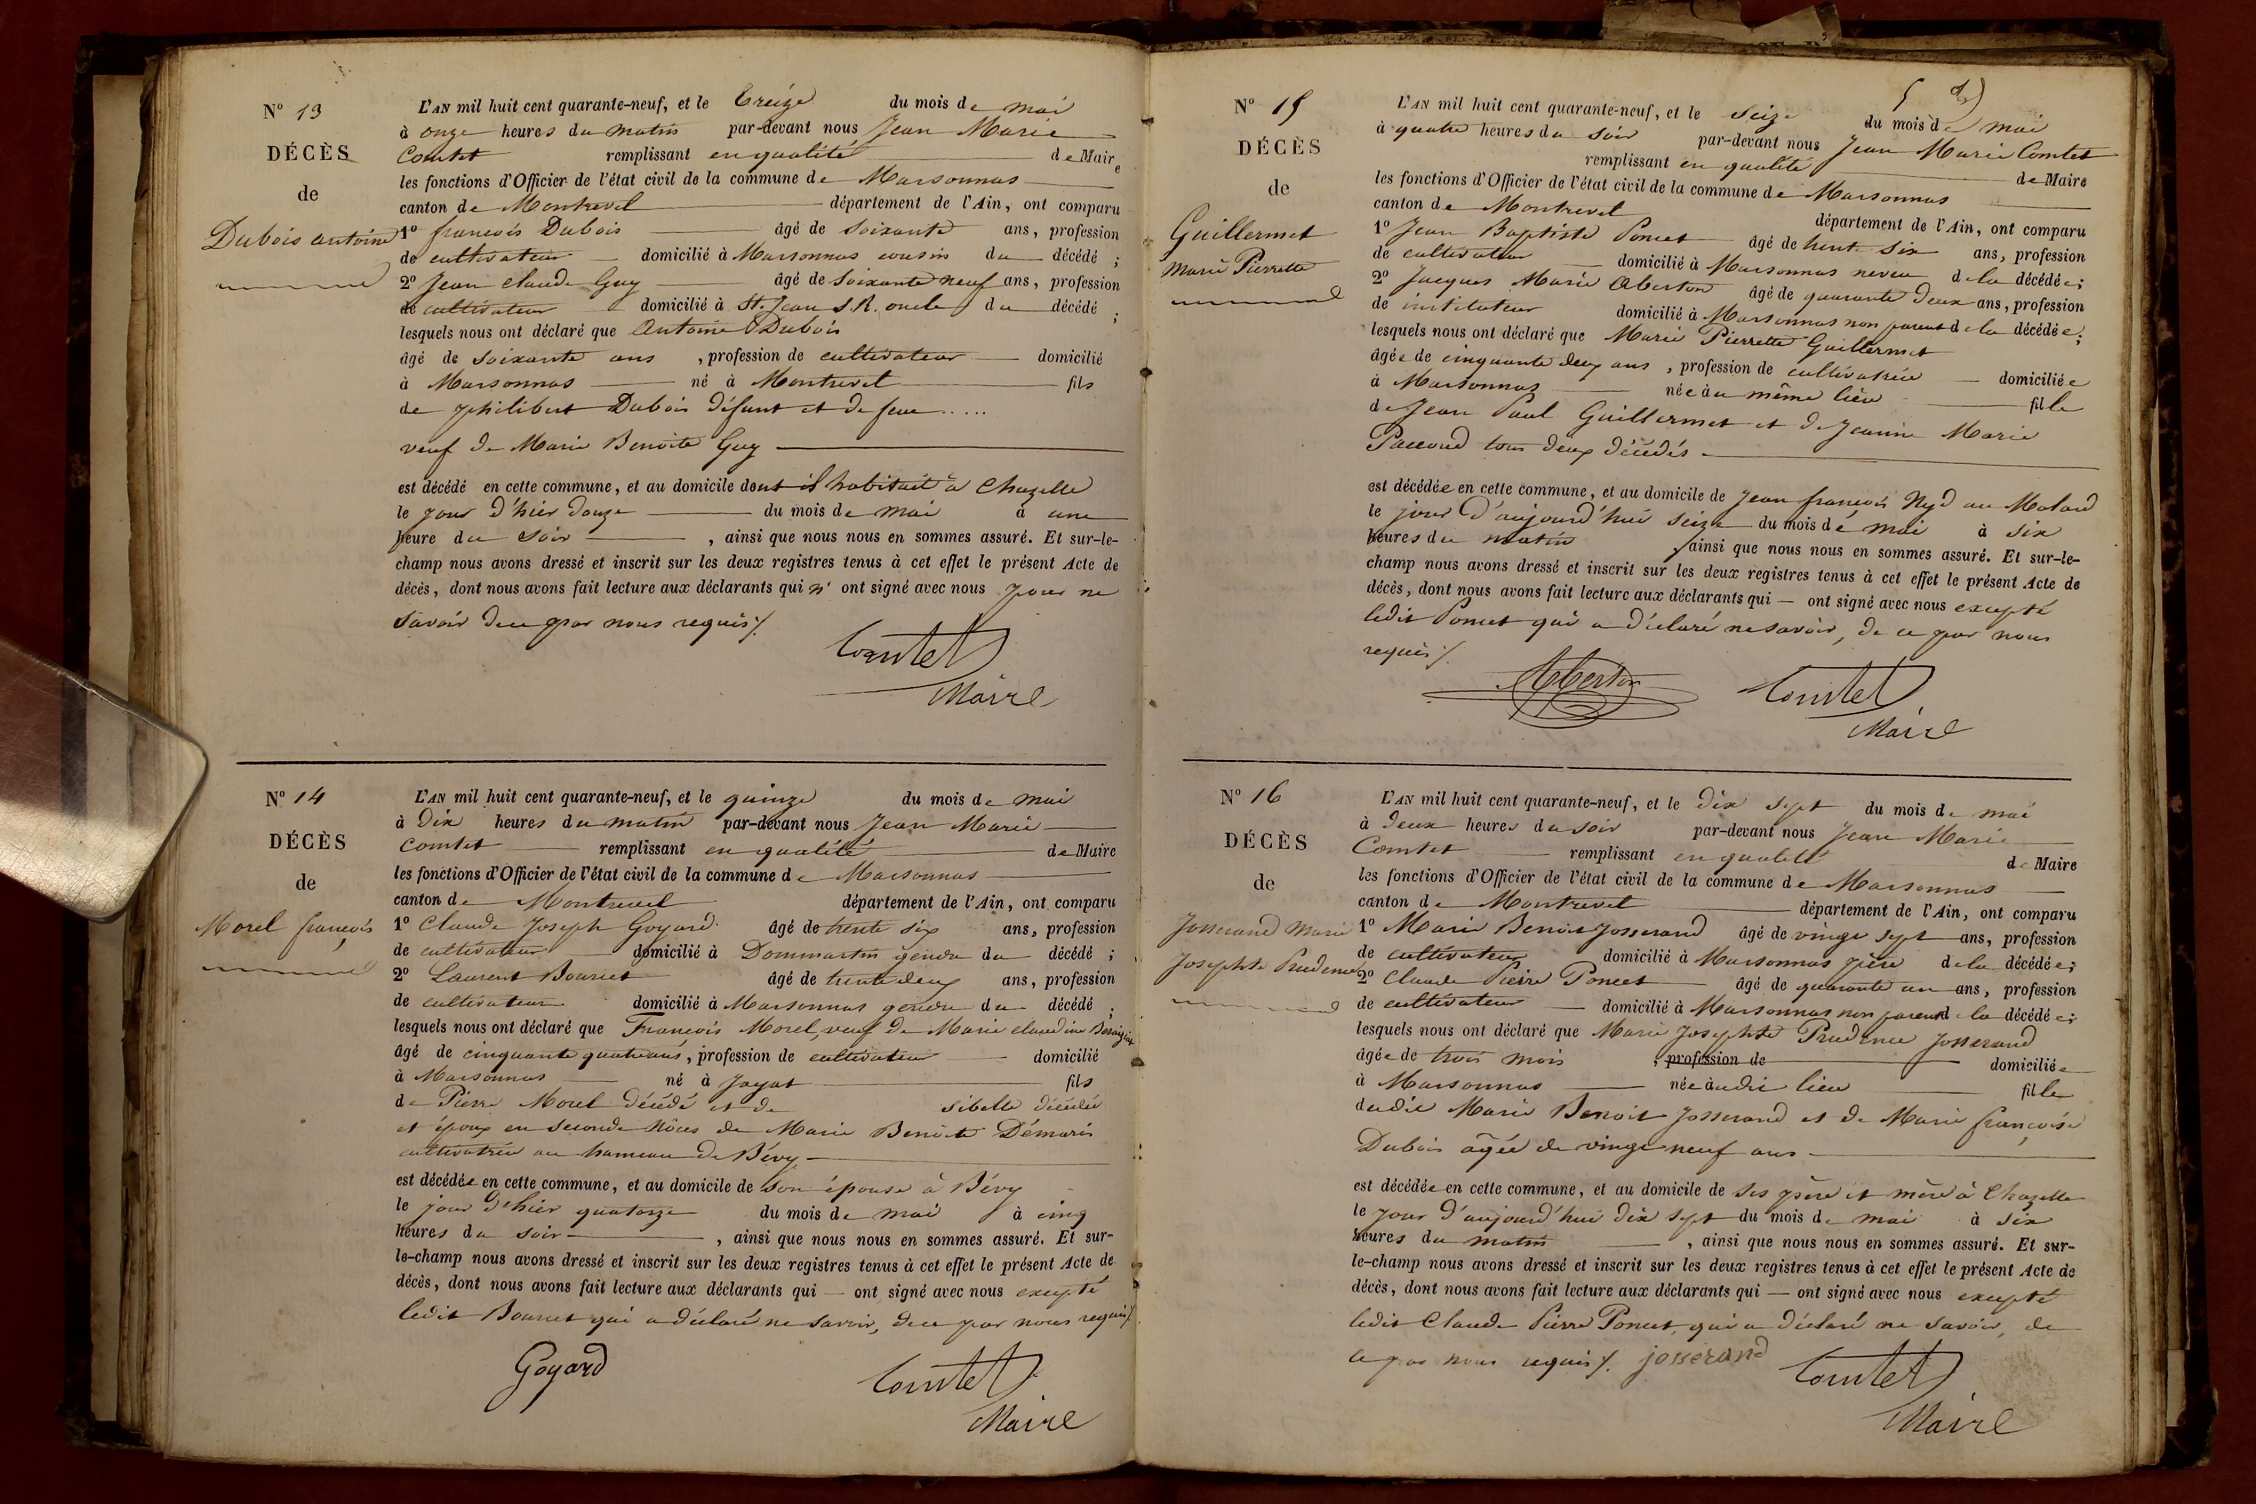 No 13
DÉCÈS
de
Dubois antoine
L'AN mil huit cent quarante-neuf, et le treize du mois de mai
à onze heures du matin par-devant nous Jean Marie
Comtet remplissant en qualité de Maire
les fonctions d'Officier de l'état civil de la commune de Marsonnas
canton de Montrevel département de l'Ain, ont comparu
1o françois Dubois âgé de soixante ans, profession
de cultivateur domicilié à Marsonnas cousin du décédé ;
2o Jean claude Guy âgé de soixante neuf ans, profession
de cultivateur domicilié à St. Jean S. R. oncle du décédé ;
lesquels nous ont déclaré que Antoine Dubois
âgé de soixante ans , profession de cultivateur domicilié
à Marsonnas né à Montrevel fils
de philibert Dubois défunt et de feue .....
veuf de Marie Benoite Guy
est décédé en cette commune, et au domicile dont il habitait à Chazelle
le jour d'hier douze du mois de mai à une
heure du soir , ainsi que nous nous en sommes assuré. Et sur-le-
champ nous avons dressé et inscrit sur les deux registres tenus à cet effet le présent Acte de
décès, dont nous avons fait lecture aux déclarants qui n' ont signé avec nous pour ne
savoir de ce par nous requis ./.
Comtet
Maire
No 14
DÉCÈS
de
Morel françois
L'AN mil huit cent quarante-neuf, et le quinze du mois de mai
à dix heures du matin par-devant nous Jean Marie
Comtet remplissant en qualité de Maire
les fonctions d'Officier de l'état civil de la commune de Marsonnas
canton de Montrevel département de l'Ain, ont comparu
1o Claude Joseph Goyard âgé de trente six ans, profession
de cultivateur domicilié à Dommartin gendre du décédé ;
2o Laurent Bourcet âgé de trente deux ans, profession
de cultivateur domicilié à Marsonnas gendre du décédé ;
lesquels nous ont déclaré que François Morel, veuf de Marie claudine
âgé de cinquante quatre ans, profession de cultivateur domicilié
à Marsonnas né à Jayat fils
de Pierre Morel décédé et de sibelle décédée
et époux en seconde Nôces de Marie Benoite Démaris
cultivatrice au hameau de Bévy
est décédée en cette commune, et au domicile de son épouse à Bévy
le jour d'hier quatorze du mois de mai à cinq
heures du soir , ainsi que nous nous en sommes assuré. Et sur-
le-champ nous avons dressé et inscrit sur les deux registres tenus à cet effet le présent Acte de
décès, dont nous avons fait lecture aux déclarants qui — ont signé avec nous excepté
ledit Bourcet qui a déclaré ne savoir, de ce par nous requis ./.
Goyard
Comtet
Maire
No 15
DÉCÈS
de
Guillermet
Marie Pierrette
5
L'AN mil huit cent quarante-neuf, et le seize du mois de mai
à quatre heures du soir par-devant nous Jean Marie Comtet
remplissant en qualité de Maire
les fonctions d'Officier de l'état civil de la commune de Marsonnas
canton de Montrevel département de l'Ain, ont comparu
1o Jean Baptiste Poncet âgé de trente six ans, profession
de cultivateur domicilié à Marsonnas neveu de la décédée ;
2o Jacques Marie Aberton âgé de quarante deux ans, profession
de instituteur domicilié à Marsonnas non parent de la décédée ;
lesquels nous ont déclaré que Marie Pierrette Guillermet
âgée de cinquante deux ans , profession de cultivatrice domiciliée
à Marsonnas née au même lieu fille
de Jean Paul Guillermet et de Jeanne Marie
Paccoud tous deux décédés
est décédée en cette commune, et au domicile de Jean françois Nyd au Molard
le jour d'aujourd'hui seize du mois de mai à six
heures du matin , ainsi que nous nous en sommes assuré. Et sur-le-
champ nous avons dressé et inscrit sur les deux registres tenus à cet effet le présent Acte de
décès, dont nous avons fait lecture aux déclarants qui — ont signé avec nous excepté
ledit Poncet qui a déclaré ne savoir, de ce par nous
requis ./.
Aberton
Comtet
Maire
No 16
DÉCÈS
de
Josserand Marie
Josephte Prudence
L'AN mil huit cent quarante-neuf, et le dix sept du mois de mai
à deux heures du soir par-devant nous Jean Marie
Comtet remplissant en qualité de Maire
les fonctions d'Officier de l'état civil de la commune de Marsonnas
canton de Montrevel département de l'Ain, ont comparu
1o Marie Benoit Josserand âgé de vingt sept ans, profession
de cultivateur domicilié à Marsonnas père de la décédée ;
2o Claude Pierre Poncet âgé de quarante un ans, profession
de cultivateur domicilié à Marsonnas non parent de la décédée ;
lesquels nous ont déclaré que Marie Josephte Prudence Josserand
âgée de trois mois , profession de domiciliée
à Marsonnas née audit lieu fille
dudit Marie Benoit Josserand et de Marie françoise
Dubois âgée de vingt neuf ans
est décédée en cette commune, et au domicile de ses père et mère à Chazelle
le jour d'aujourd'hui dix sept du mois de mai à six
heures du matin , ainsi que nous nous en sommes assuré. Et sur-
le-champ nous avons dressé et inscrit sur les deux registres tenus à cet effet le présent Acte de
décès, dont nous avons fait lecture aux déclarants qui — ont signé avec nous excepté
ledit Claude Pierre Poncet, qui a déclaré ne savoir, de
ce par nous requis ./. josserand
Comtet
Maire